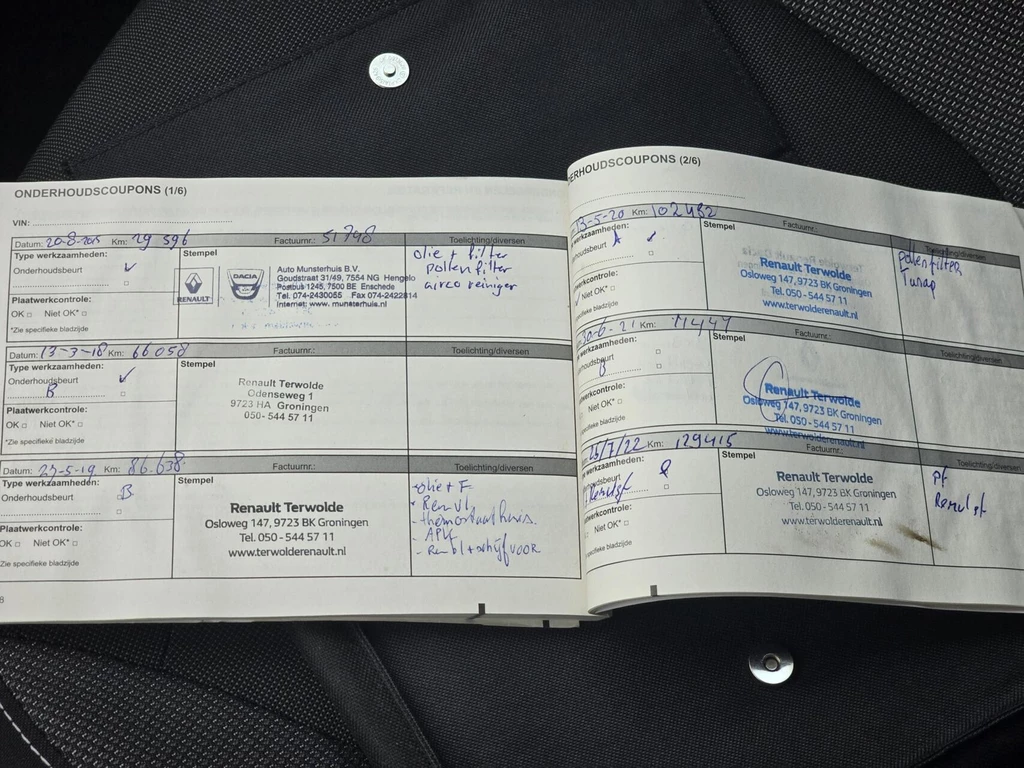 ONDERHOUDSCOUPONS (1/6)
VIN:
Datum: 20-8-2015 Km: 29 596 Factuurnr.: 51798 Toelichting/diversen
Type werkzaamheden:
Onderhoudsbeurt
Plaatwerkcontrole:
OK Niet OK*
*Zie specifieke bladzijde
Stempel
RENAULT
DACIA
Auto Munsterhuis B.V.
Goudstraat 31/49, 7554 NG Hengelo
Postbus 1245, 7500 BE Enschede
Tel. 074-2430055 Fax 074-2422814
Internet: www. munsterhuis.nl
olie + filter
pollenfilter
airco reiniger
Datum: 13-3-18 Km: 66058 Factuurnr.: Toelichting/diversen
Type werkzaamheden:
Onderhoudsbeurt
B
Plaatwerkcontrole:
OK Niet OK*
*Zie specifieke bladzijde
Stempel
Renault Terwolde
Odenseweg 1
9723 HA Groningen
050-544 57 11
Datum: 27-5-19 Km: 86.638 Factuurnr.: Toelichting/diversen
Type werkzaamheden:
Onderhoudsbeurt B
Plaatwerkcontrole:
OK Niet OK*
Zie specifieke bladzijde
Stempel
Renault Terwolde
Osloweg 147, 9723 BK Groningen
Tel. 050 - 544 57 11
www.terwolderenault.nl
- olie + F
- Remvl.
- thermostaathuis.
- APK
- Rembl + schijf VOOR
8
ERHOUDSCOUPONS (2/6)
13-5-20 Km: 102482 Factuurnr.: Toelichting/diversen
werkzaamheden:
houdsbeurt A
controle:
Niet OK*
specifieke bladzijde
Stempel
Renault Terwolde
Osloweg 147, 9723 BK Groningen
Tel. 050 - 544 57 11
www.terwolderenault.nl
pollenfilter
Tunap
30-6-21 Km: Factuurnr.: Toelichting/diversen
werkzaamheden:
houdsbeurt
B
werkcontrole:
Niet OK*
specifieke bladzijde
Stempel
Renault Terwolde
Osloweg 147, 9723 BK Groningen
Tel. 050 - 544 57 11
www.terwolderenault.nl
/7/22 Km: 129415 Factuurnr.: Toelichting/diversen
werkzaamheden:
houdsbeurt
Remvlst
werkcontrole:
Niet OK*
specifieke bladzijde
Stempel
Renault Terwolde
Osloweg 147, 9723 BK Groningen
Tel. 050 - 544 57 11
www.terwolderenault.nl
pf
Remvlst